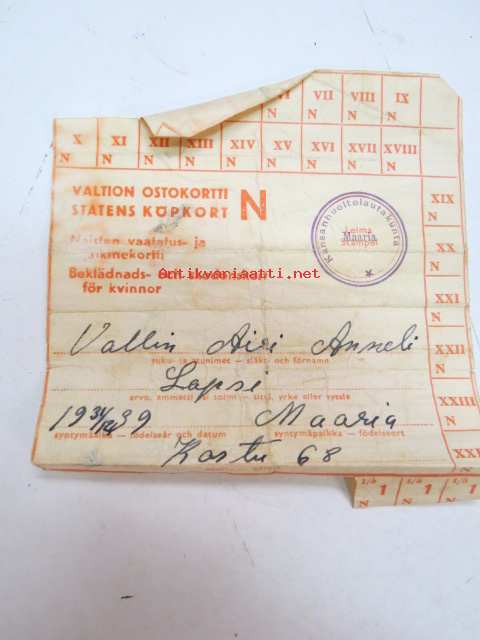 VI VII VIII IX
N N N
X XI XII XIII XIV XV XVI XVII XVIII
N N N N N N N N N
VALTION OSTOKORTTI N
STATENS KÖPKORT
Naisten vaatetus- ja
jalkinekortti
Beklädnads- och skodonskort
för kvinnor
Kansanhuoltolautakunta
Leima
Maaria
Stämpel
Antikvariaatti.net
XIX
N
XX
N
XXI
N
XXII
N
XXIII
N
Vallin Airi Anneli
suku- ja etunimet — släkt- och förnamn
Lapsi
arvo, ammatti tai toimi — titel, yrke eller syssla
39 Maaria
syntymäaika — födelseår och datum syntymäpaikka — födelseort
Kastu 68
1/5 1/5 1/5
1 1 1
N N N